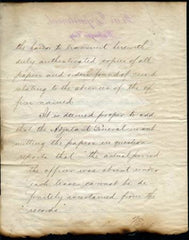 the honor to transmit herewith
duly authenticated copies of all
papers and orders found of record
relating to the absence of the of-
ficer named
It is deemed proper to add
that the Adjutant General in sub-
mitting the papers in question
reports that "the actual period
the officer was absent under
each leave cannot be de-
finitely ascertained from the
records"